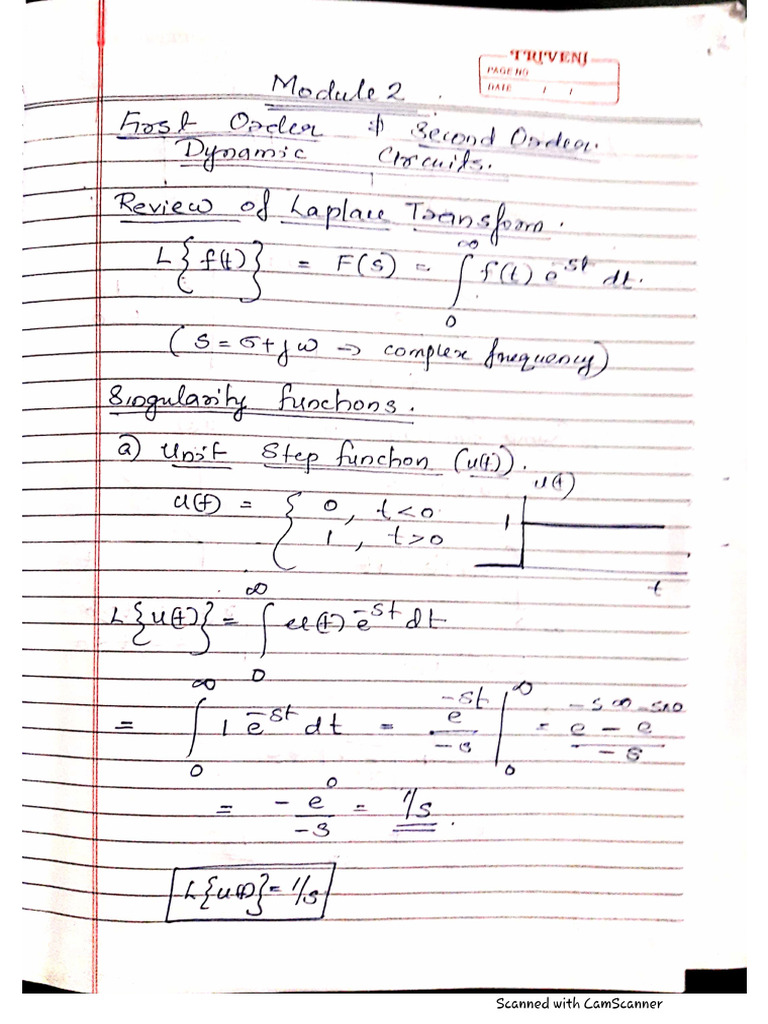 TRIVENI
PAGE NO
DATE / /
Module 2.
First Order & Second Order
Dynamic Circuits.
Review of Laplace Transform.
L{f(t)} = F(s) = ∫₀^∞ f(t) e^-st dt.
(s = σ + jω → complex frequency)
Singularity functions.
a) Unit Step function (u(t)).
u(t) = { 0, t < 0
1, t > 0
u(t)
1
t
L{u(t)} = ∫₀^∞ u(t) e^-st dt
= ∫₀^∞ 1 e^-st dt = e^-st/-s |₀^∞ = e^-s∞ - e^-s×0/-s
= -e^0/-s = 1/s.
L{u(t)} = 1/s
Scanned with CamScanner